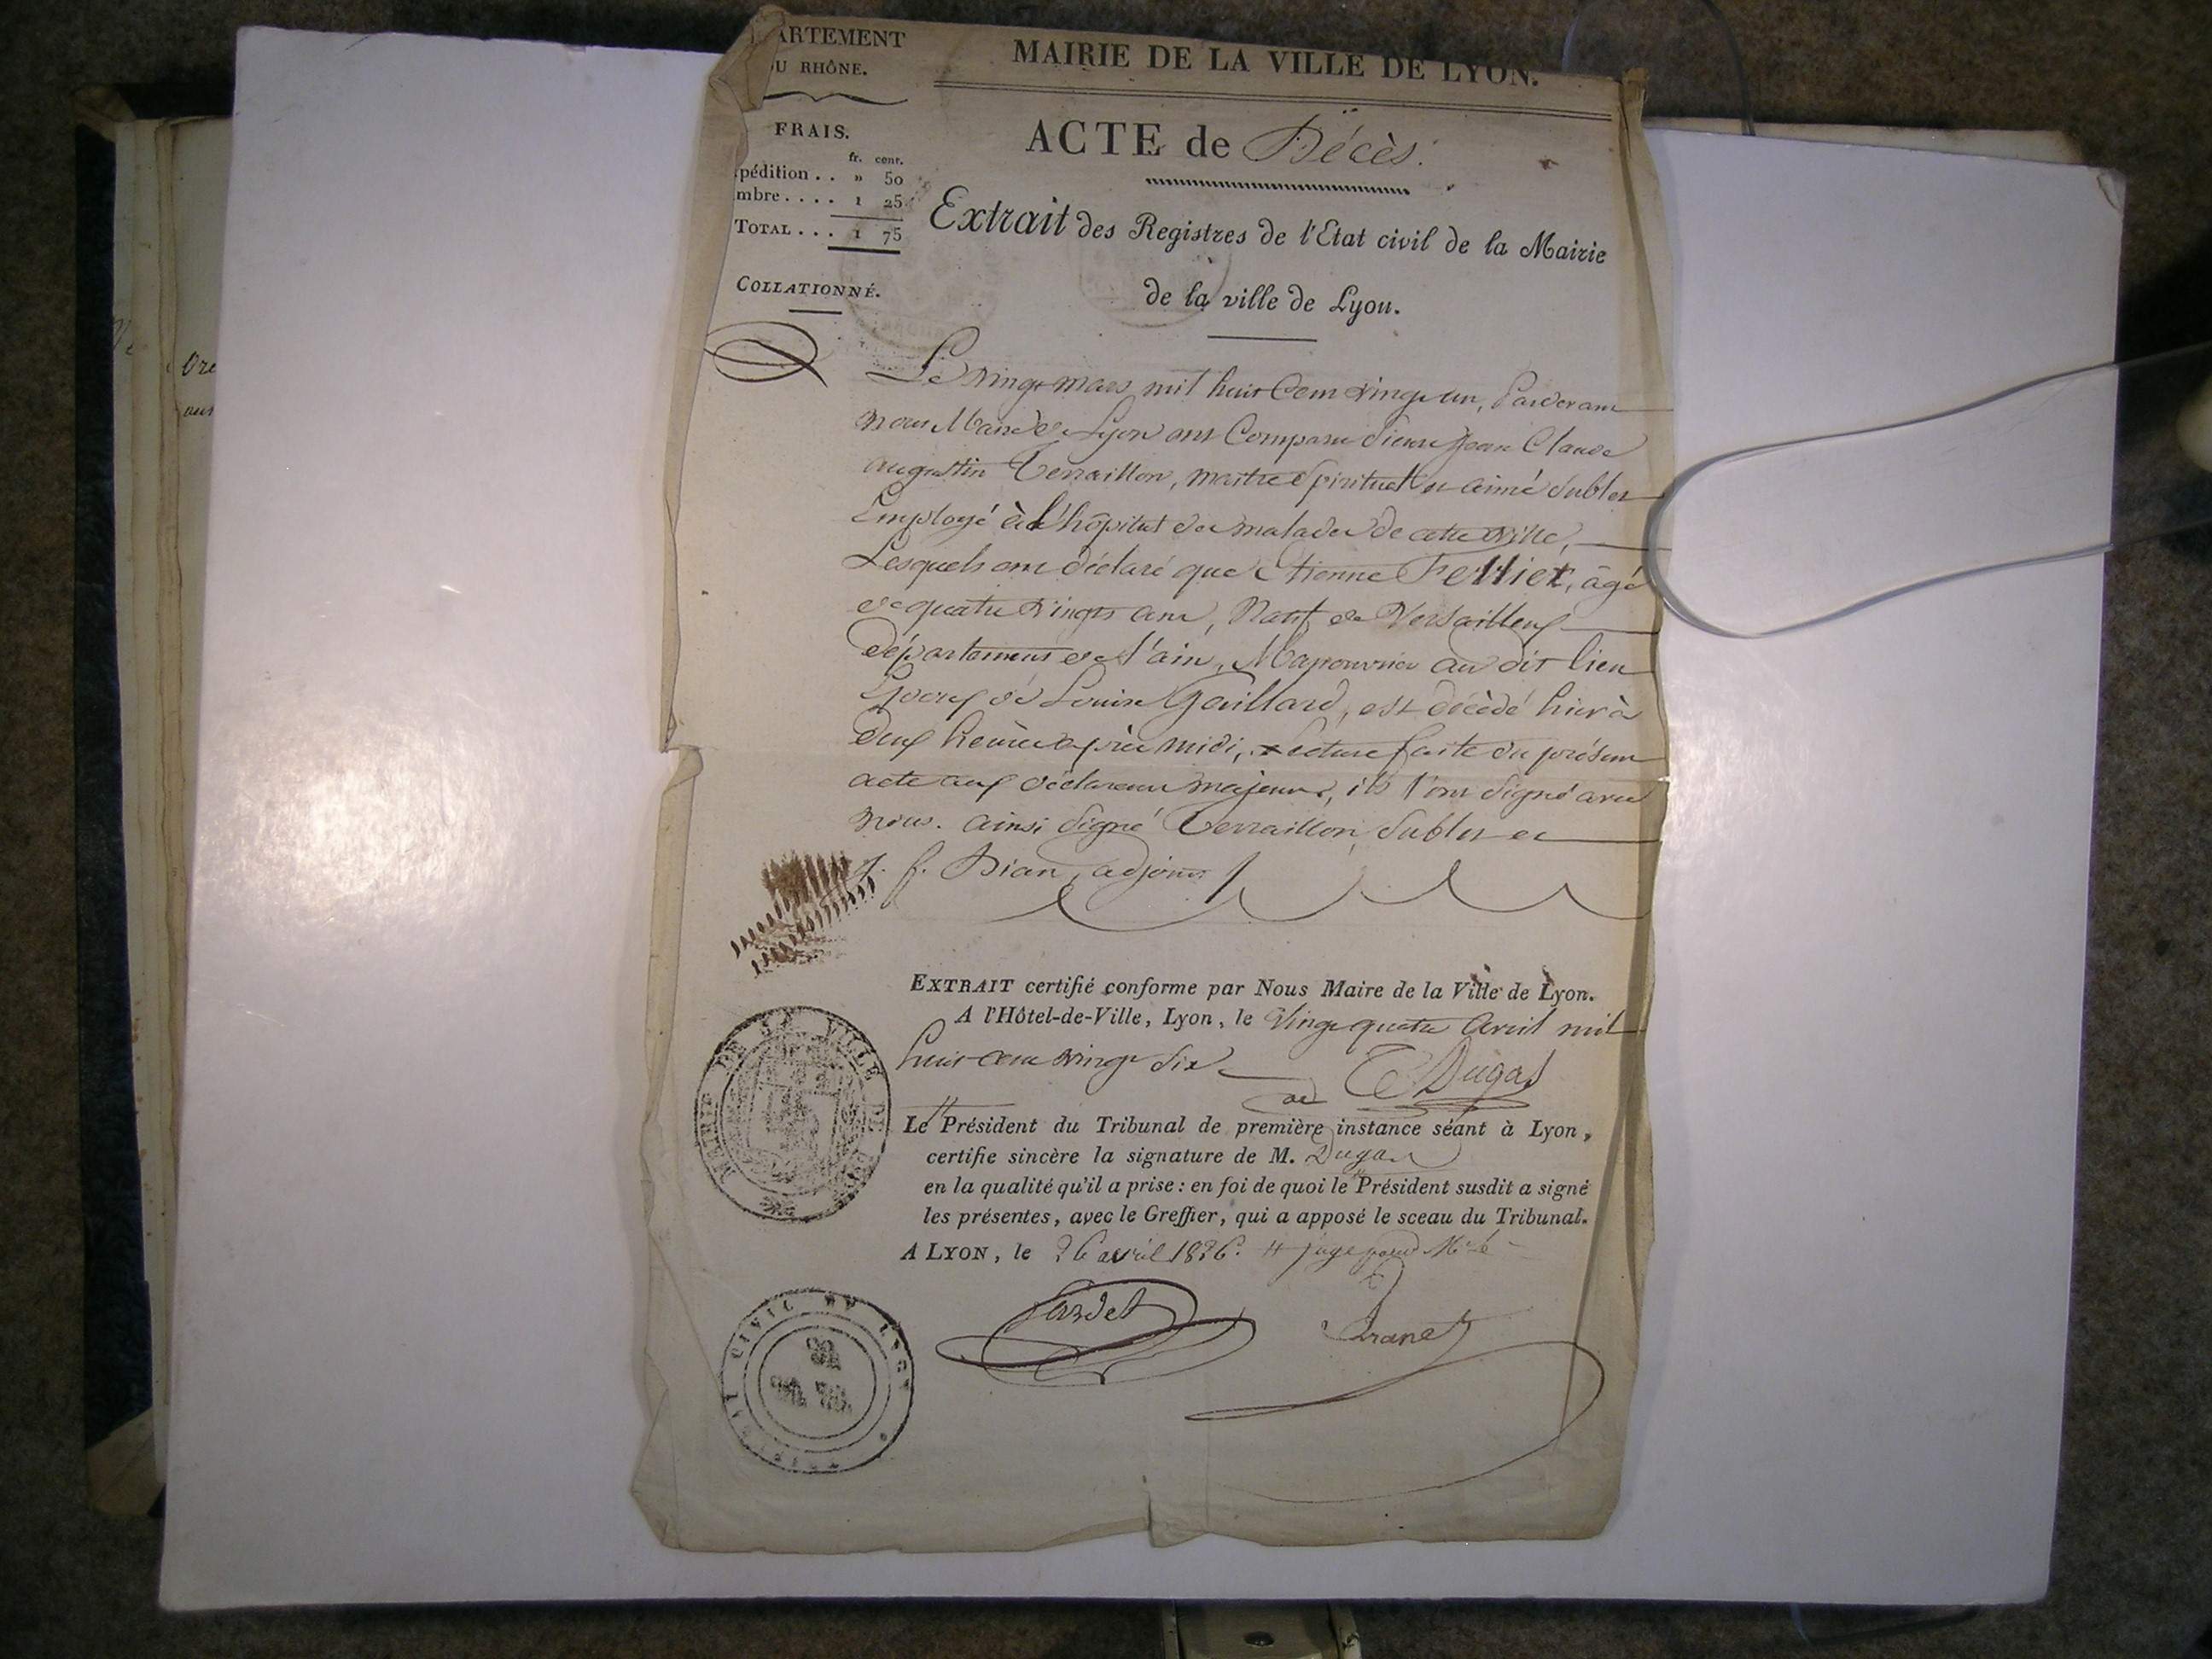 ARTEMENT
U RHÔNE.
MAIRIE DE LA VILLE DE LYON.
FRAIS.
fr. cent.
pédition . . » 50
mbre . . . . 1 25
TOTAL . . . 1 75
COLLATIONNÉ.
ACTE de Décès.
Extrait des Registres de l'Etat civil de la Mairie
de la ville de Lyon.
Le vingt mars mil huit Cent vingt un, Pardevant
nous Maire de Lyon ont Comparu Sieurs Jean Claude
augustin Terraillon, maitre Spirituel et aimé Sublet
Employé à l'hôpital des malades de cette Ville,
Lesquels ont déclaré que Etienne Felliet, âgé
de quatre Vingts ans, Natif de Versailleux
département de l'ain, Manouvrier au dit lieu
Epoux de Louise Gaillard, est décédé hier à
deux heures après midi, Lecture faite du présent
acte aux déclarans majeurs, ils l'ont Signé avec
nous. ainsi Signé Terraillon, Sublet et
f. Dian, adjoint
EXTRAIT certifié conforme par Nous Maire de la Ville de Lyon.
A l'Hôtel-de-Ville, Lyon, le Vingt quatre avril mil
huit cent vingt Six
Dugas
Le Président du Tribunal de première instance séant à Lyon,
certifie sincère la signature de M. Dugas
en la qualité qu'il a prise : en foi de quoi le Président susdit a signé
les présentes, avec le Greffier, qui a apposé le sceau du Tribunal.
A LYON, le 26 avril 1826. juge pour Mr le
MAIRIE DE LA VILLE DE LYON
CIVIL DE LYON